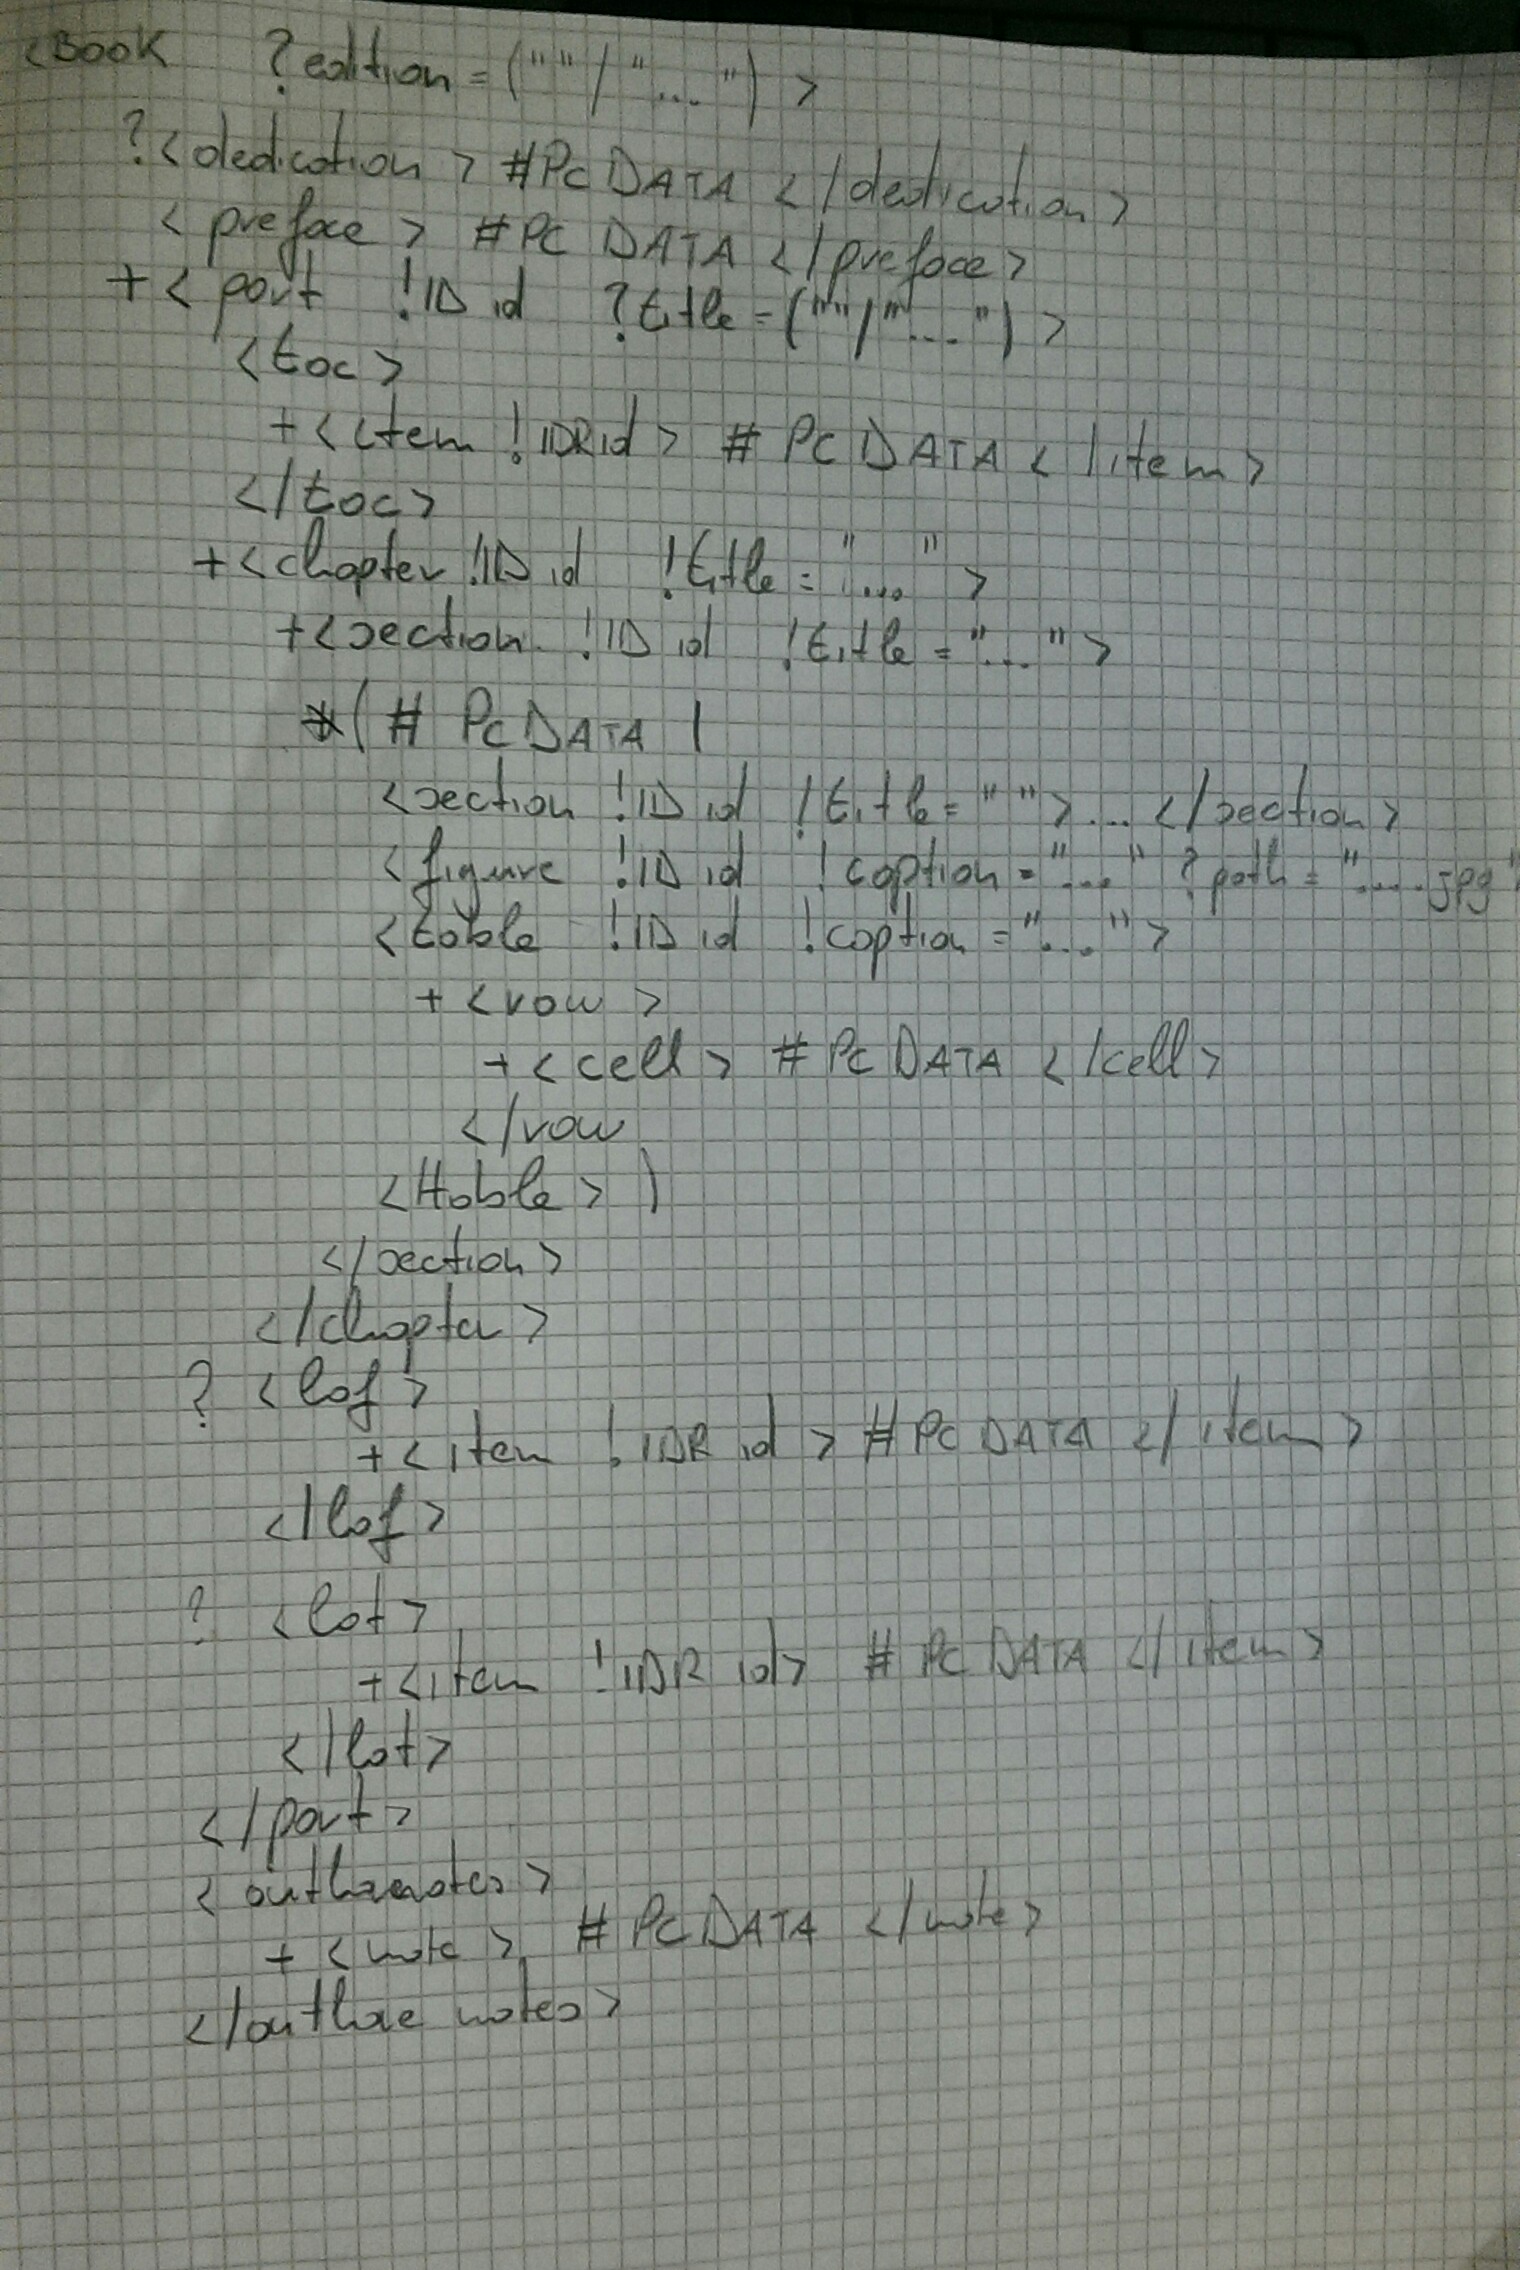 <BOOK ?edition = ("" / "...") >
?<dedication > #PCDATA </dedication>
<preface > #PCDATA </preface>
+< part !ID id ?title = (""/"...") >
<toc>
+<item !IDRid> # PCDATA </item>
</toc>
+<chapter !ID id !title = "..." >
+<section !ID id !title = "...">
*( # PCDATA |
<section !ID id !title = "">... </section>
<figure !ID id !caption = "..." ?path = ".....jpg"
<table !ID id !caption = "...">
+ <row >
+ <cell> # PCDATA </cell>
</row
</table> )
</section>
</chapter>
? <lof>
+<item !IDR id > # PCDATA </item>
</lof>
? <lot>
+<item !IDR id> # PCDATA </item>
</lot>
</part>
<authornotes>
+ <note > # PCDATA </note>
</author notes>